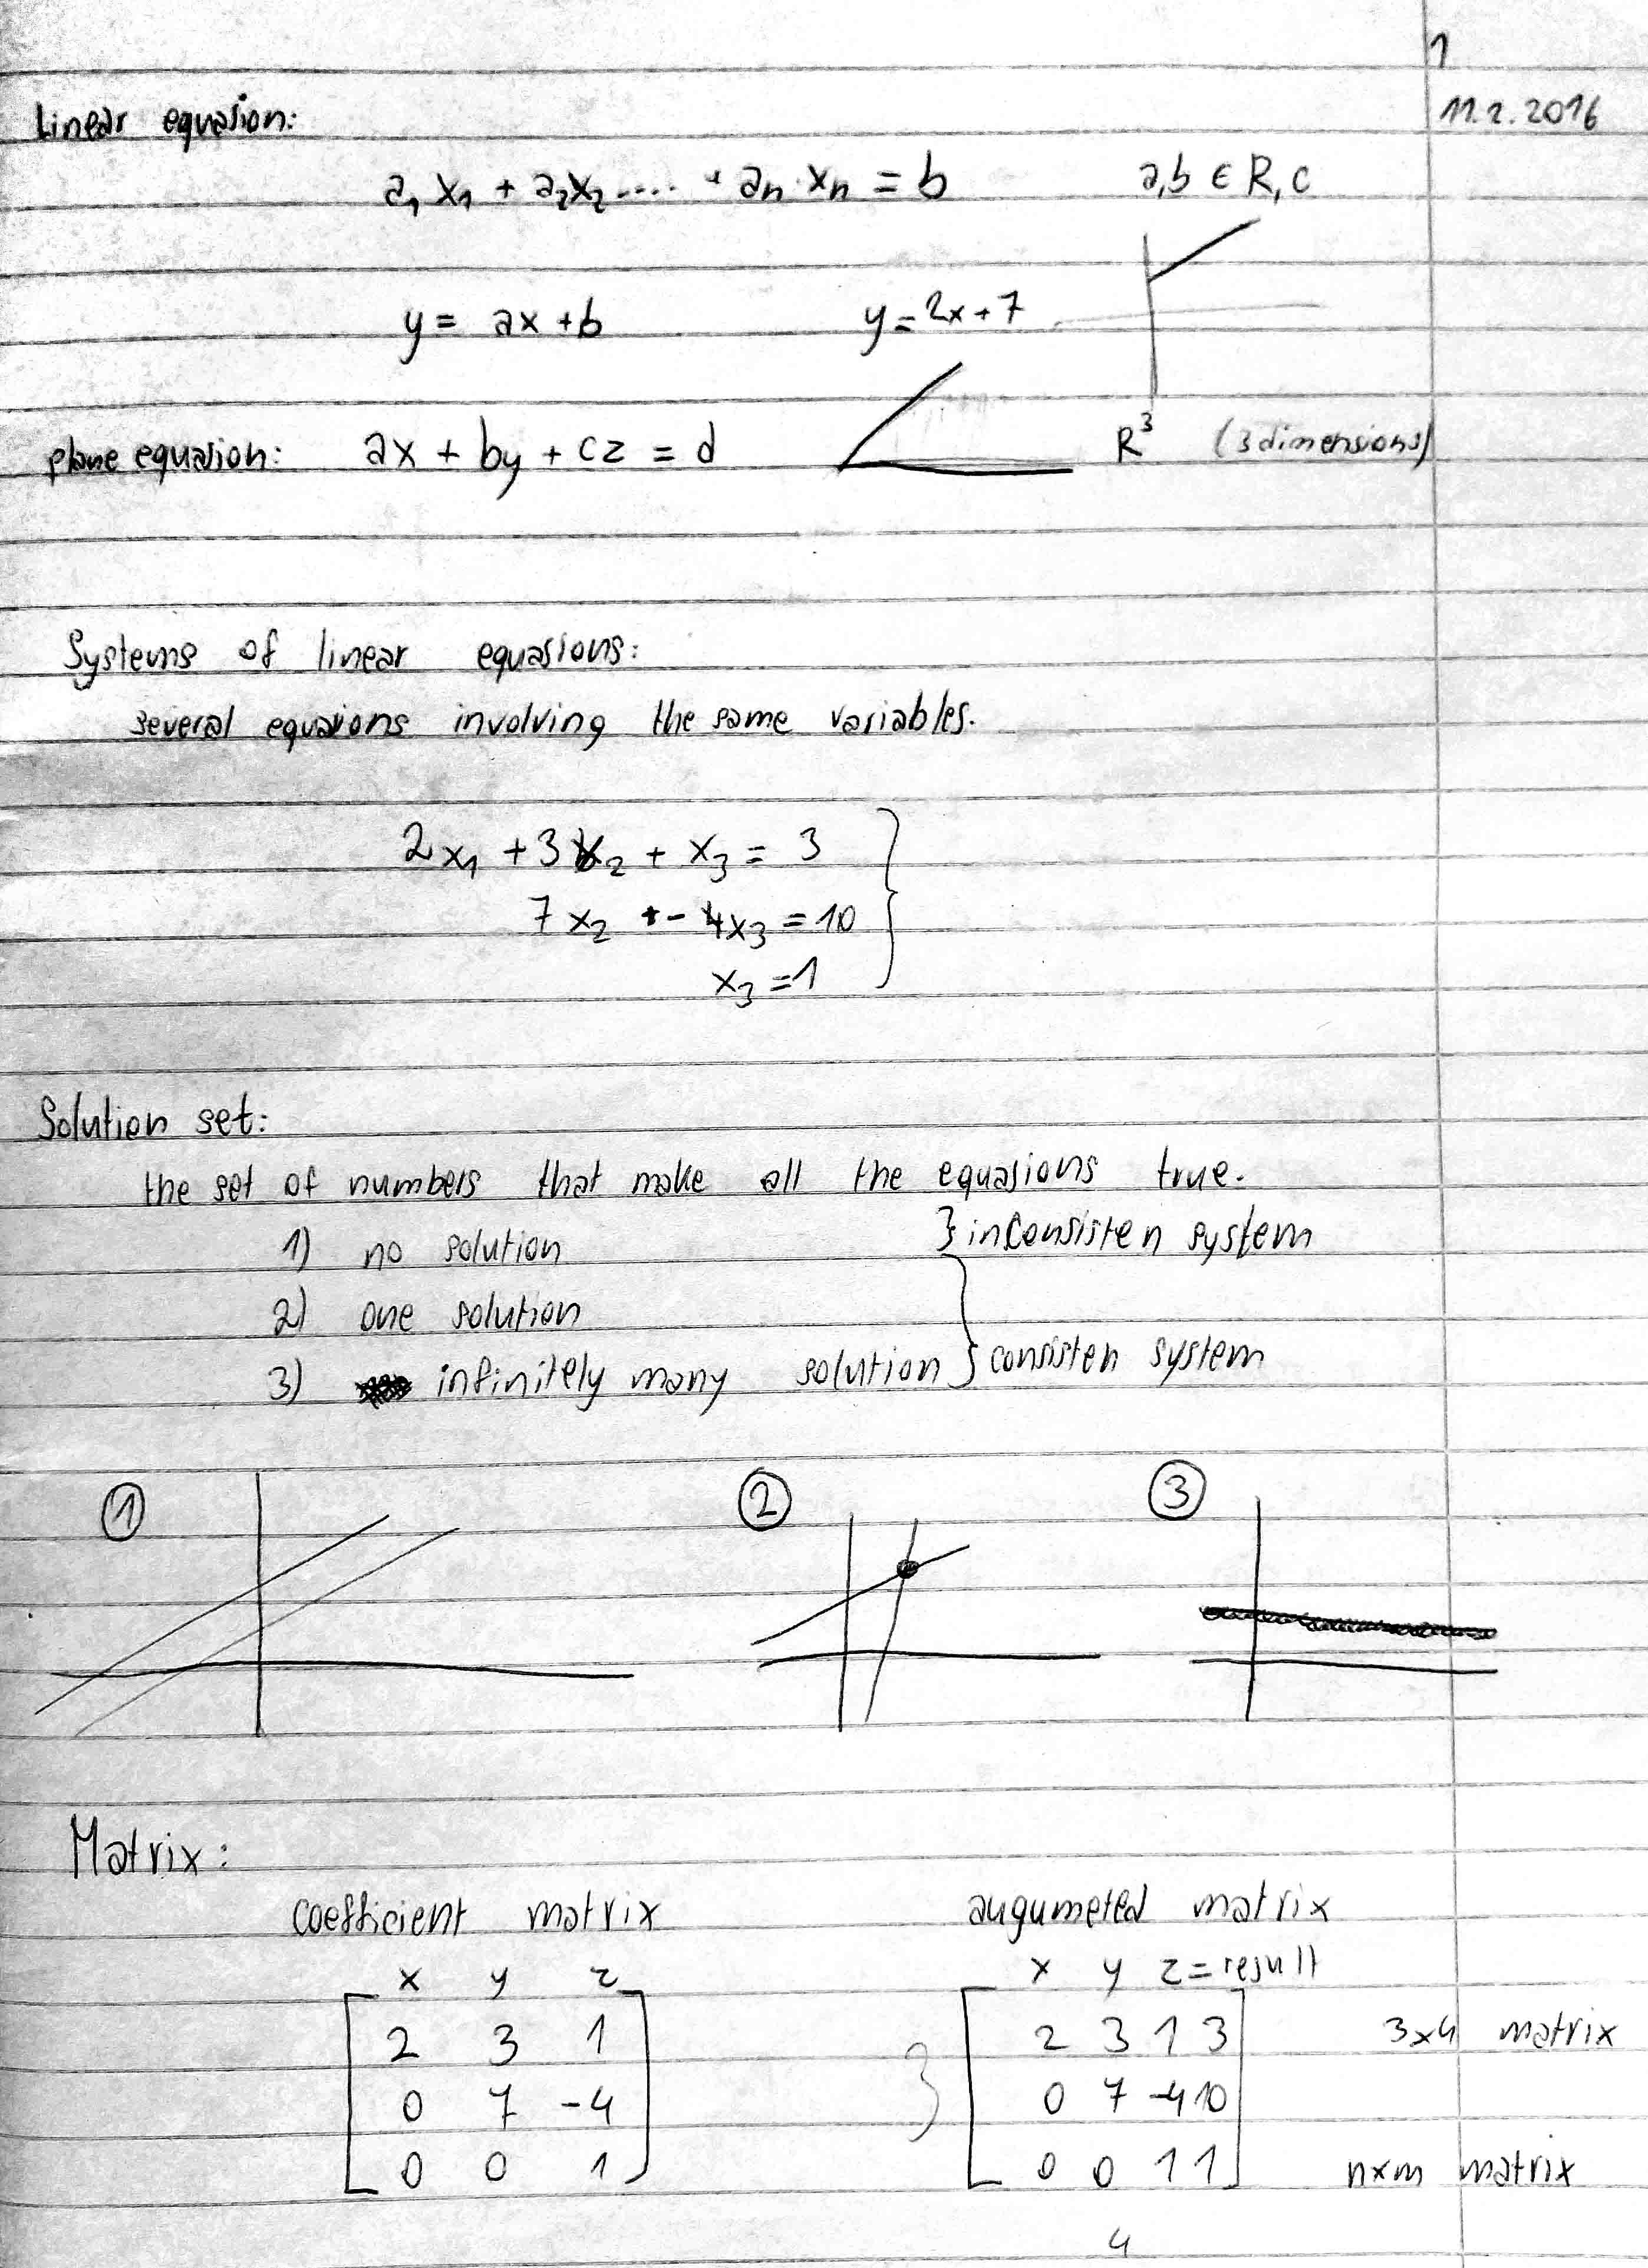 1
11.2.2016
Linear equasion:
a₁x₁ + a₂x₂ ..... + an·xn = b    a,b ∈ R, C
y = ax + b    y = 2x + 7
plane equasion: ax + by + cz = d    R³ (3 dimensions)
Systems of linear equasions:
several equasions involving the same variables.
2x₁ + 3x₂ + x₃ = 3
7x₂ +- 4x₃ = 10
x₃ = 1
Solution set:
the set of numbers that make all the equasions true.
1) no solution } inconsisten system
2) one solution
3) infinitely many solution } consisten system
① ② ③
Matrix:
coefficient matrix    augumeted matrix
x y z    x y z = result
2 3 1    2 3 1 3    3x4 matrix
0 7 -4    0 7 -4 10
0 0 1    0 0 1 1    nxm matrix
4